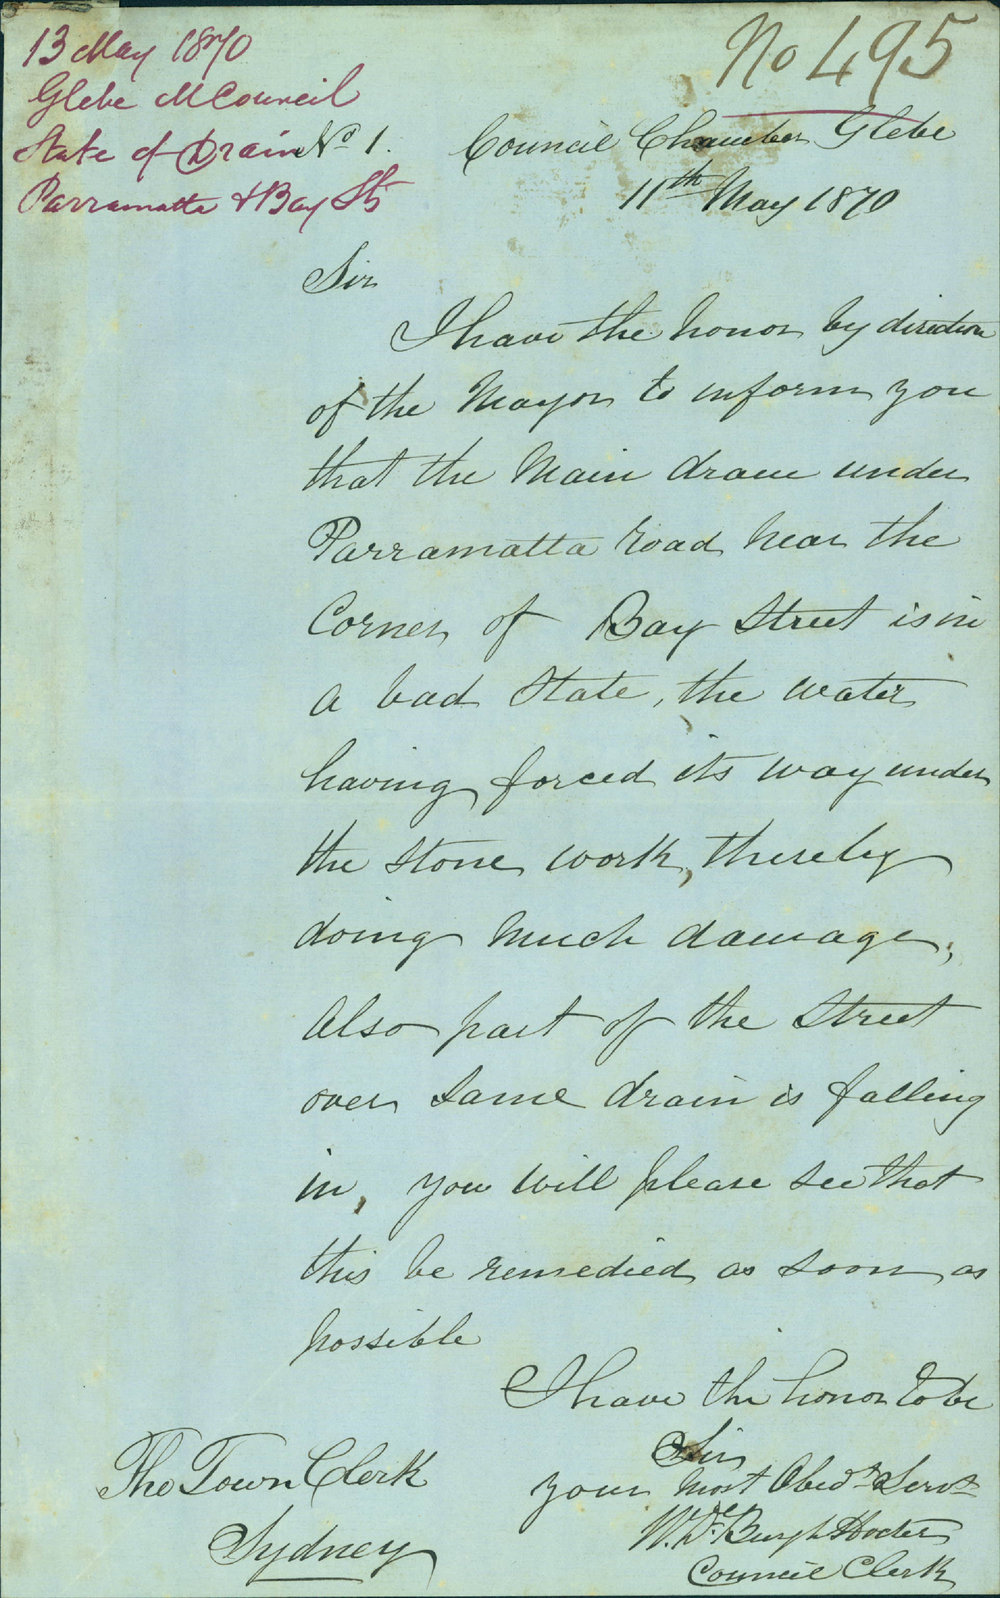 No 495
13 May 1870
Glebe M Council
State of Drain
Parramatta & Bay Sts
No 1.
Council Chamber Glebe
11th May 1870
Sir
I have the honor by direction
of the Mayor to inform you
that the Main drain under
Parramatta road near the
Corner of Bay Street is in
a bad State, the water
having forced its way under
the stone work, thereby
doing much damage,
Also part of the Street
over same drain is falling
in, you will please see that
this be remedied as soon as
possible
I have the honor to be
Sir
your most Obedt Servt
W. De Burgh Hocter
Council Clerk
The Town Clerk
Sydney